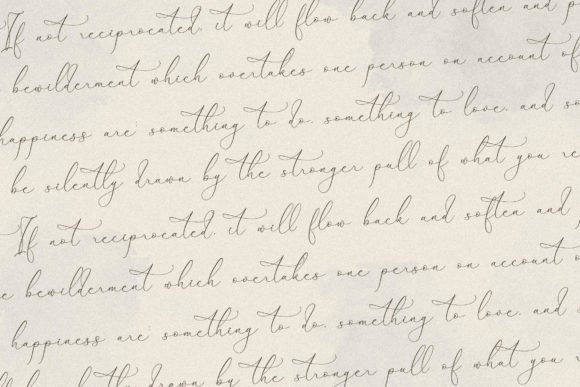 If not reciprocated, it will flow back and soften and p
bewilderment which overtakes one person on account of
happiness are something to do, something to love, and so
be silently drawn by the stronger pull of what you re
If not reciprocated, it will flow back and soften and
e bewilderment which overtakes one person on account o
happiness are something to do, something to love, and s
silently drawn by the stronger pull of what you